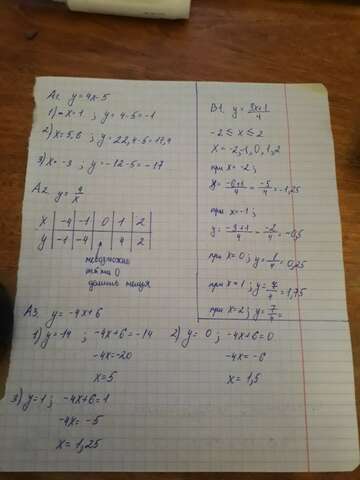 A1. y = 4x - 5
1) x = 1 ; y = 4 - 5 = -1
2) x = 5,6 ; y = 22,4 - 5 = 17,4
3) x = -3 ; y = -12 - 5 = -17
A2. y = 4/x
x | -4 | -1 | 0 | 1 | 2
y | -1 | -4 | | 4 | 2
невозможно
на 0
делить нельзя
A3. y = -4x + 6
1) y = 14 ; -4x + 6 = -14
-4x = -20
x = 5
2) y = 0 ; -4x + 6 = 0
-4x = -6
x = 1,5
3) y = 1 ; -4x + 6 = 1
-4x = -5
x = 1,25
B1. y = (3x+1)/4
-2 ≤ x ≤ 2
x = -2, -1, 0, 1, 2
при x = -2 ;
y = (-6+1)/4 = -5/4 = -1,25
при x = -1 ;
y = (-3+1)/4 = -2/4 = -0,5
при x = 0 ; y = 1/4 = 0,25
при x = 1 ; y = /4 = 1,75
при x = 2 ; y = 7/4 =